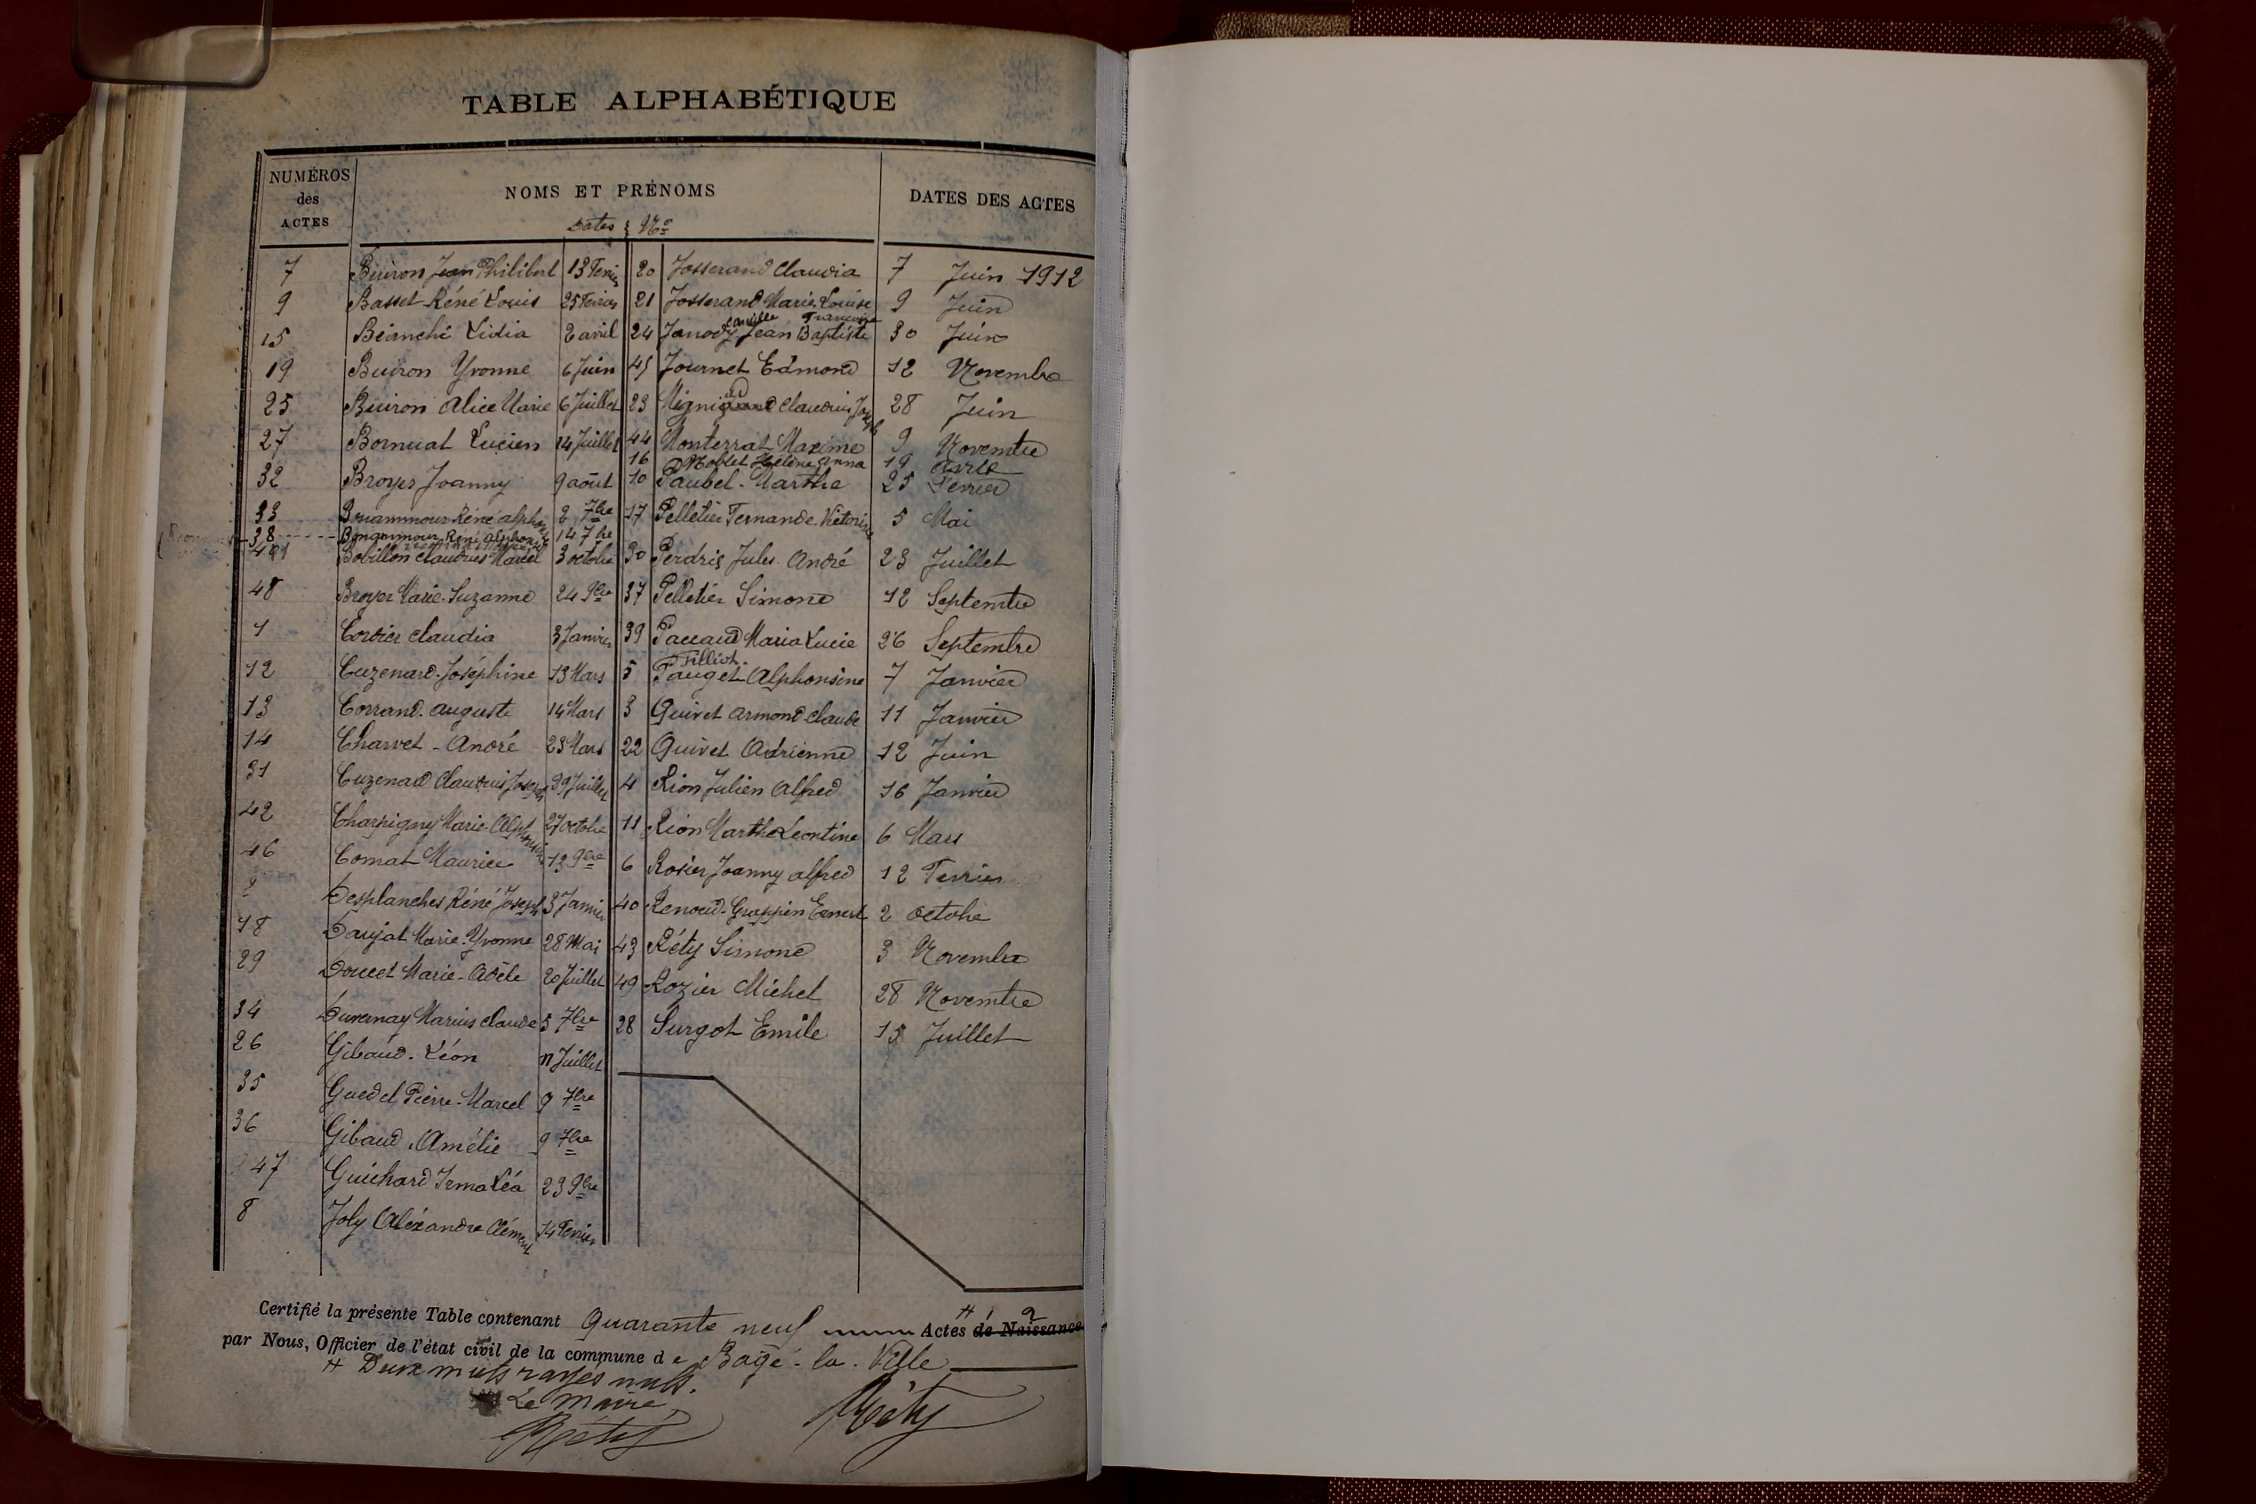 TABLE ALPHABÉTIQUE
NUMÉROS des ACTES NOMS ET PRÉNOMS DATES DES ACTES
Dates Nos
7 Buiron Jean Philibert 13 Fevrier 20 Josserand Claudia 7 Juin 1912
9 Basset Réné Louis 25 Fevrier 21 Josserand Marie Louise 9 Juin
15 Bianchi Lidia 2 avril 24 Janody Camille Jean Baptiste Francois 30 Juin
19 Buiron Yvonne 6 Juin 45 Journet Edmond 12 Novembre
25 Buiron Alice Marie 6 Juillet 23 Claudius Joseph 28 Juin
27 Bornuat Lucien 14 Juillet 44 Monterrat Maxime 9 Novembre
16 Noblet Hélène Anna 19 avril
32 Broyer Joanny 9 août 10 Paubel Marthe 25 Fevrier
33 Réné alphonse 2 7bre 17 Pelletier Fernande Victorine 5 Mai
38 Réné Alphonse 14 7bre
41 Bobillon Claudius Marcel 3 octobre 30 Perdrix Jules André 23 Juillet
48 Broyer Marie-Suzanne 24 9bre 37 Pelletier Simone 12 Septembre
1 Cordier Claudia 3 Janvier 39 Paccaud Maria Lucie 26 Septembre
12 Cuzenard Joséphine 13 Mars 5 Pauget Filliot Alphonsine 7 Janvier
13 Corrand auguste 14 Mars 3 Quivet Armond Claude 11 Janvier
14 Charvet - André 23 Mars 22 Quivet Adrienne 12 Juin
31 Cuzenard Claudius Joseph Juillet 4 Rion Julien Alfred 16 Janvier
42 Charpigny Marie Alphonsine 27 octobre 11 Rion Marthe Leontine 6 Mars
46 Comat Maurice 13 9bre 6 Rosier Joanny alfred 12 Fevrier
2 Desplanches Réné Joseph 3 Janvier 40 Renoud-Grappin Ernest 2 octobre
18 Daujat Marie-Yvonne 28 Mai 43 Réty Simone 3 Novembre
29 Doucet Marie-Adèle 20 Juillet 49 Rozier Michel 28 Novembre
34 Duvernay Marius Claude 5 7bre 28 Surgot Emile 15 Juillet
26 Gibaud. Léon 11 Juillet
35 Guedel Pierre-Marcel 9 7bre
36 Gibaud Amélie 9 7bre
47 Guichard Irma Léa 23 9bre
8 Joly Aléxandre Clément 14 Fevrier
Certifié la présente Table contenant Quarante neuf Actes de Naissance
par Nous, Officier de l'état civil de la commune de Bagé-la-Ville
# Deux mots rayés nuls.
Le Maire
Réty Réty